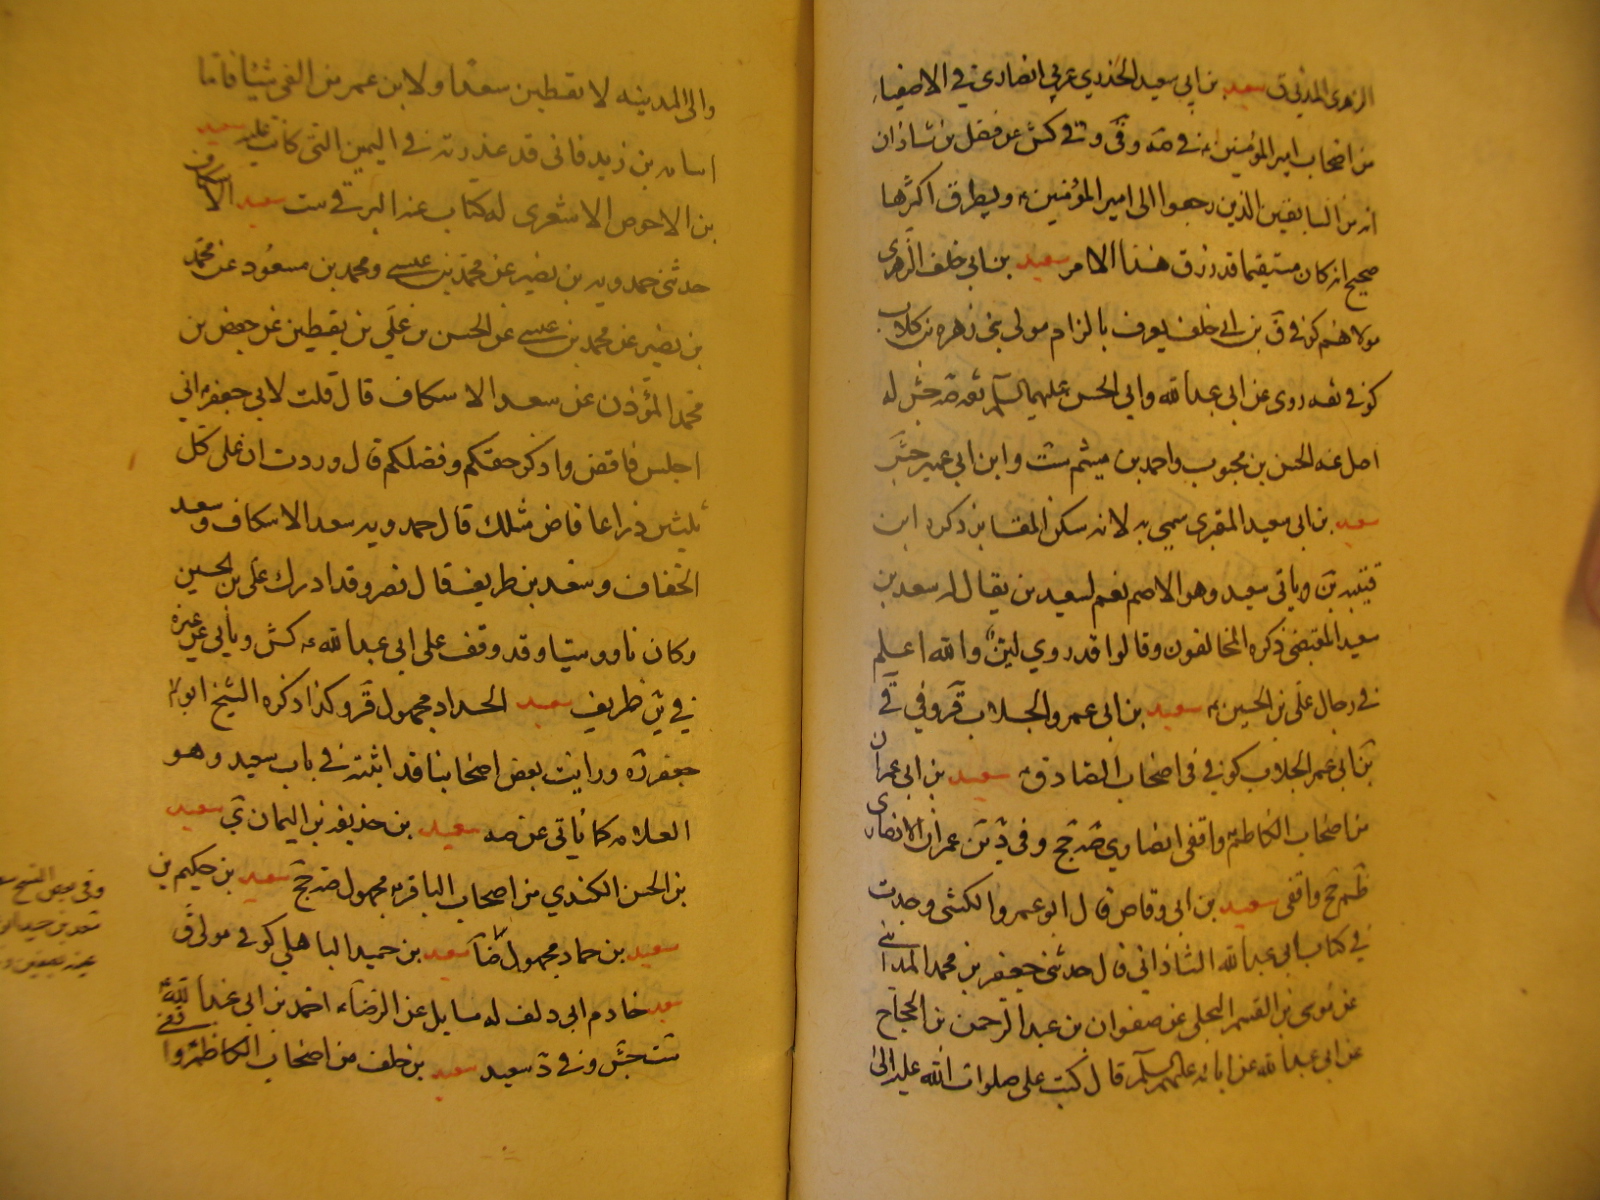 الزهري المدني ق سعيد بن ابي سعيد الخدري عربي انصاري في الاصفياء
من اصحاب امير المؤمنين ع في صه وفي كش عن فضل بن شاذان
انه من السابقين الذين رجعوا الى امير المؤمنين ع وبطرق اكثرها
صحيح انه كان مستقيما قد رزق هذا الامر سعيد بن ابي خلف الزهري
مولاهم كوفي ق بن ابي خلف يعرف بالزام مولى بني زهره بن كلاب
كوفي ثقه روى عن ابي عبد الله وابي الحسن عليهما السلم ثقه صه جش له
اصل عنه الحسن بن محبوب واحمد بن ميثم ست وابن ابي عمير جش
سعيد بن ابي سعيد المقبري سمي به لانه سكن المقابر ذكره ابن
قتيبه ين وياتي سعيد وهو الاصم نعم لسعيد من يقال له سعد بن
سعيد المقتضى ذكره المخالفون وقالوا قد روي لين والله اعلم
في رجال علي بن الحسين ع سعيد بن ابي عمرو الجلاب قر وفي ق
بن ابي عمر الجلاب كوفي في اصحاب الصادق ع سعيد بن ابي عمران
من اصحاب الكاظم ع واقفي انصاري صه جخ وفي بن عمران الانصاري
ظم جخ واقفي سعيد بن ابي وقاص قال ابو عمرو الكشي وجدت
في كتاب ابي عبد الله الشاذاني قال حدثني جعفر بن محمد المدائني
عن موسى بن القسم البجلي عن صفوان بن عبد الرحمن بن الحجاج
عن ابي عبد الله عن ابائه عليهم السلم قال كتب علي صلوات الله عليه الى
والي المدينه لا تعطين سعدا ولا ابن عمر من الفي شيئا فاما
اسامه بن زيد فاني قد عذرته في اليمين التي كانت عليه سعيد
بن الاحوص الاشعري له كتاب عنه البرقي ست سعيد الاسكاف
حدثني حمدويه بن نصير عن محمد بن عيسى ومحمد بن مسعود عن محمد
بن نصير عن محمد بن عيسى عن الحسن بن علي بن يقطين عن حفص بن
محمد المؤذن عن سعد الاسكاف قال قلت لابي جعفر ع اني
اجلس فاقص واذكر حقكم وفضلكم قال وددت ان على كل
ثلثين ذراعا قاص مثلك قال حمدويه سعد الاسكاف وسعد
الخفاف وسعد بن طريف قال نصر وقد ادرك علي بن الحسين
وكان ناووسيا وقد وقف على ابي عبد الله ع كش ويأتي عن غيره
في ين ظريف سعيد الحداد مجهول قر وكذا ذكره الشيخ ابو
جعفر ره ورايت بعض اصحابنا قد اثبته في باب سعيد وهو
العلامه كما يأتي عن صه سعيد بن حذيفه بن اليمان ي سعيد
بن الحسن الكندي من اصحاب الباقر ع مجهول صه جخ سعيد بن حكيم بن
سعيد بن حماد مجهول ضا سعيد بن حميد الباهلي كوفي مولى ق
سعيد خادم ابي دلف له مسايل عن الرضا ع احمد بن ابي عبد الله عنه
ست جش وفي د سعيد سعيد بن خلف من اصحاب الكاظم ع واقفي
وفي بعض النسخ